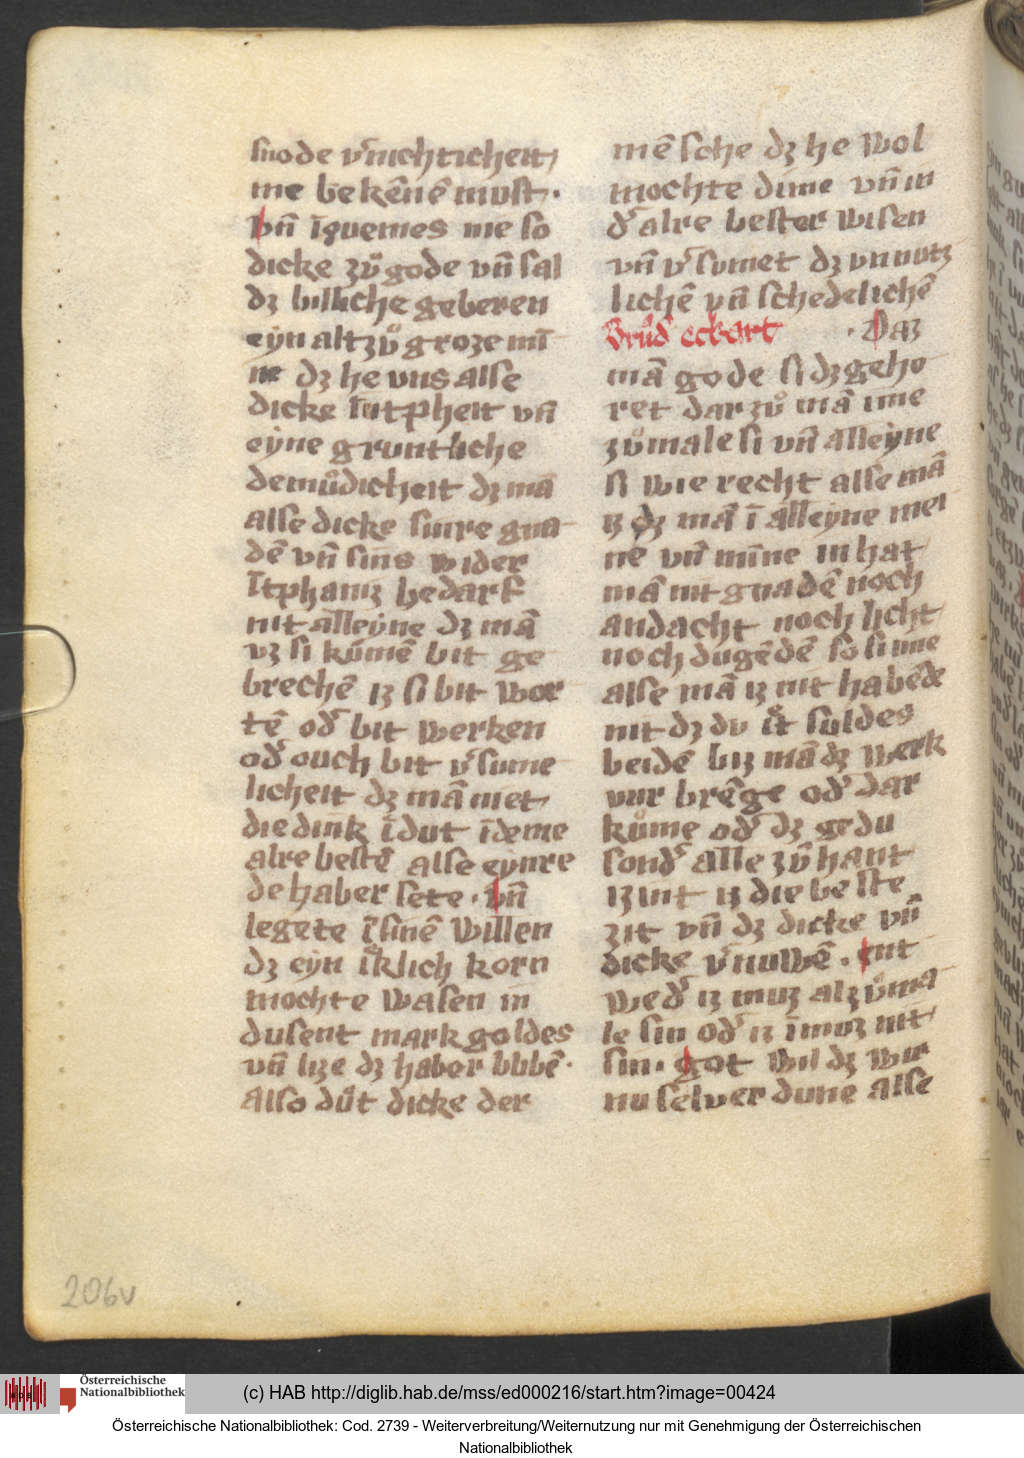 snode v͛nichticheit
me bekēnē must.
vn̄ iquemes me so
dicke zvͦ gode vn̄ sal
dꝫ billiche geberen
eyn alt zvͦ groze mī
ne dꝫ he vns alse
dicke
eyne gruntliche
demuͦdicheit dꝫ mā
alse dicke sinre gna
dē vn̄ sins wider
bedarf
nit alleyne dꝫ mā
vꝫ si kūmē bit ge
brechē iꝫ si bit wor
tē od͛ bit werken
od͛ ouch bit v͛sume
licheit dꝫ mā niet
die dink ī dut ī deme
alre bestē alse eynre
de haber sete. vn̄
legete sinē willen
dꝫ eyn korn
mochte wasen in
dusent mark goldes
vn̄ lize dꝫ haber blibē.
Also duͦt dicke der
mēsche dꝫ he wol
mochte dine vn̄ in
d͛ alre bester wisen
vn̄ v͛sumet dꝫ vnnutz
lichē vn̄ schedelichē
Brud͛ eckart . Daz
mā gode si dꝫ geho
ret dar zvͦ mā ime
zvͦmale si vn̄ alleyne
si wie recht alse mā
iz dꝫ mā ī alleyne mei
ne vn̄ minne in hat
mā nit gnadē noch
andacht noch licht
noch dugēdē so si ime
alse mā iz nit habēde
nit dꝫ du suldes
beidē biz mā dꝫ werk
vur brēge od͛ dar
kuͦme od͛ dꝫ gedu
sond͛ alle zvͦ hant
iz die beste
zit vn̄ dꝫ dicke vn̄
dicke v͛nuwē. int
wed͛ iz muz alzvͦma
le sin od͛ iz ī muz nit
sin. got wil dꝫ wir
nu selver dune alse
206v
Österreichische
Nationalbibliothek
(c) HAB http://diglib.hab.de/mss/ed000216/start.htm?image=00424
Österreichische Nationalbibliothek: Cod. 2739 - Weiterverbreitung/Weiternutzung nur mit Genehmigung der Österreichischen
Nationalbibliothek